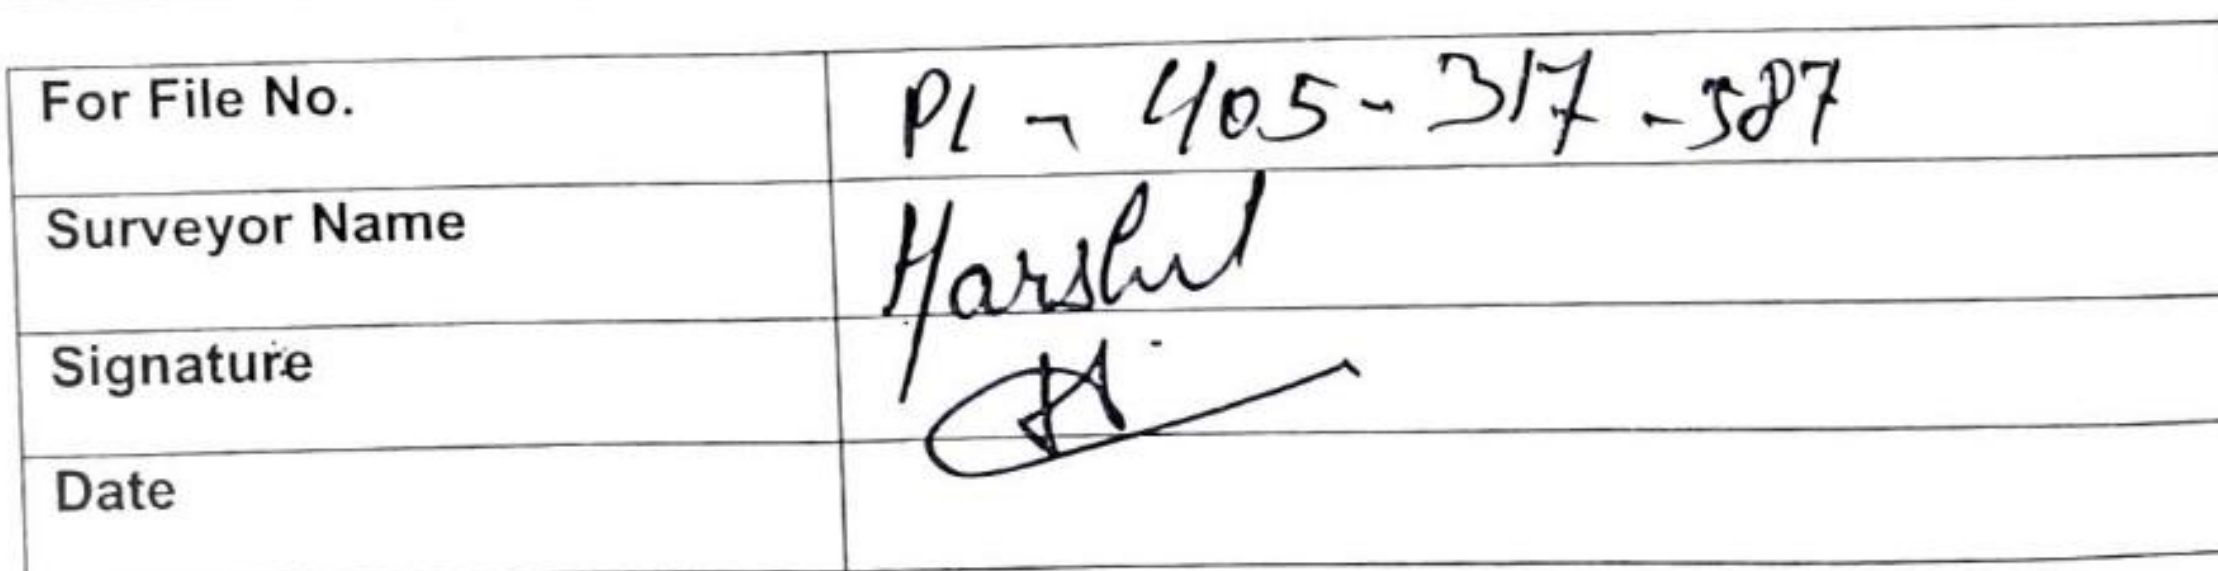 For File No. PL - 405 - 317 - 587
Surveyor Name Harshit
Signature
Date